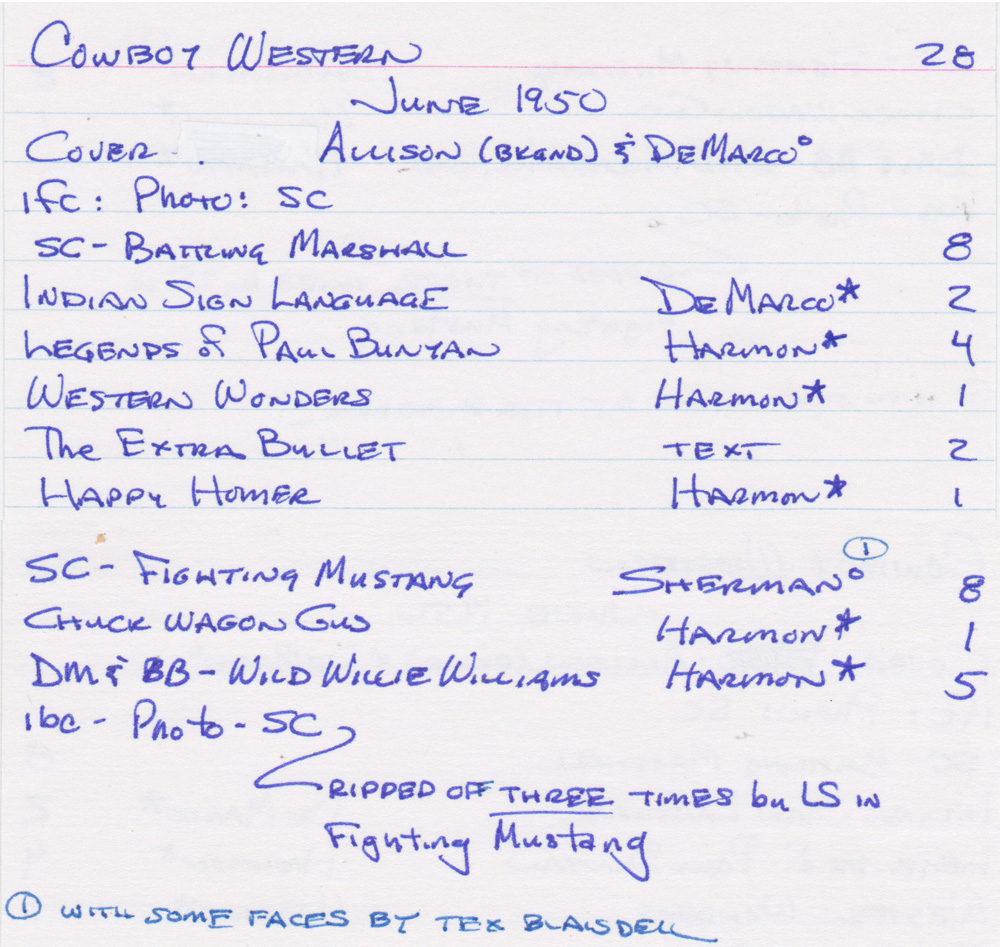 COWBOY WESTERN 28
JUNE 1950
COVER . ALLISON (BRAND) & DEMARCO°
ifc: Photo: SC
SC - BATTLING MARSHALL 8
INDIAN SIGN LANGUAGE DEMARCO* 2
LEGENDS of PAUL BUNYAN HARMON* 4
WESTERN WONDERS HARMON* 1
The EXTRA BULLET TEXT 2
HAPPY HOMER HARMON* 1
SC - FIGHTING MUSTANG SHERMAN° ① 8
CHUCK WAGON GUS HARMON* 1
DM & BB - WILD WILLIE WILLIAMS HARMON* 5
ibc - Photo - SC
RIPPED OFF THREE TIMES by LS IN
Fighting Mustang
① WITH SOME FACES BY TEX BLAISDELL